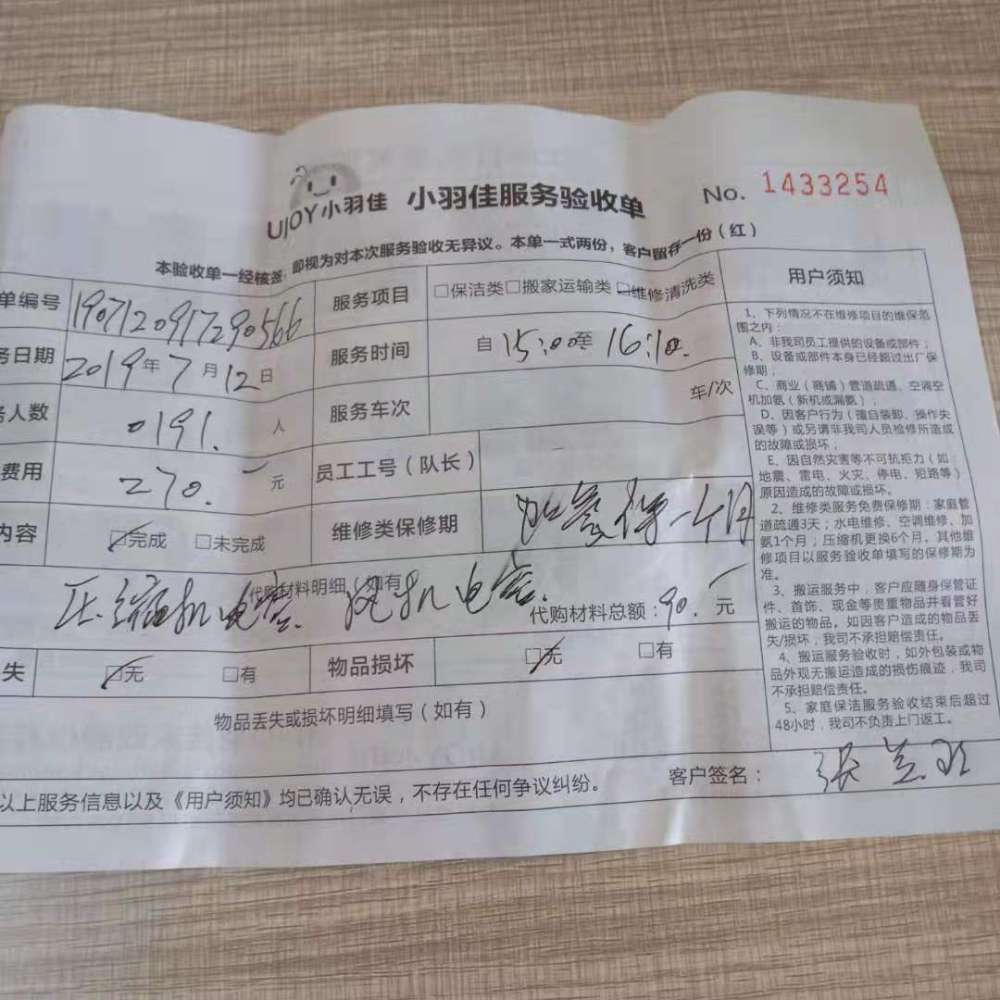 UJOY小羽佳 小羽佳服务验收单 No. 1433254
本验收单一经核签,即视为对本次服务验收无异议。本单一式两份,客户留存一份(红)
单编号 1907120917290566 服务项目 □保洁类□搬家运输类□维修清洗类
务日期 2019年7月12日 服务时间 自15:00至16:10.
务人数 0191. 人 服务车次 车/次
费用 270. 元 员工工号(队长)
内容 □完成 □未完成 维修类保修期 加氨保一个月
代购材料明细(如有)
压缩机电容. 风机电容. 代购材料总额:90.元
失 □无 □有 物品损坏 □无 □有
物品丢失或损坏明细填写(如有)
以上服务信息以及《用户须知》均已确认无误,不存在任何争议纠纷。 客户签名: 张
用户须知
1、下列情况不在维修项目的维保范
围之内:
A、非我司员工提供的设备或部件;
B、设备或部件本身已经超过出厂保
修期;
C、商业(商铺)管道疏通、空调空
机加氨(新机或漏氨);
D、因客户行为(擅自装卸、操作失
误等)或另请非我司人员检修所造成
的故障或损坏;
E、因自然灾害等不可抗拒力(如:
地震、雷电、火灾、停电、短路等)
原因造成的故障或损坏。
2、维修类服务免费保修期:家庭管
道疏通3天;水电维修、空调维修、加
氨1个月;压缩机更换6个月。其他维
修项目以服务验收单填写的保修期为
准。
3、搬运服务中,客户应随身保管证
件、首饰、现金等贵重物品并看管好
搬运的物品。如因客户造成的物品丢
失/损坏,我司不承担赔偿责任。
4、搬运服务验收时,如外包装或物
品外观无搬运造成的损伤痕迹,我司
不承担赔偿责任。
5、家庭保洁服务验收结束后超过
48小时,我司不负责上门返工。